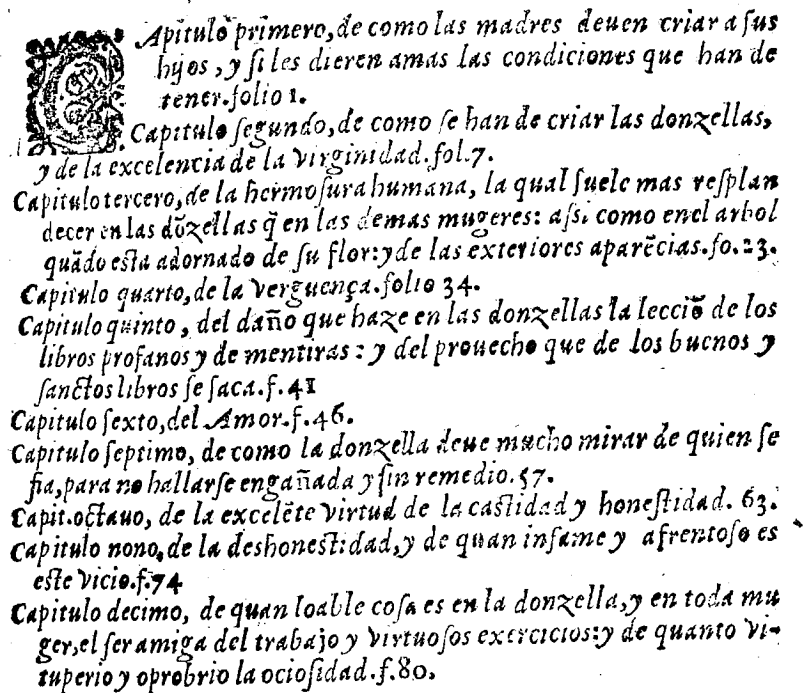 CApitulo primero, de como las madres deuen criar a sus
hijos, y si les dieren amas las condiciones que han de
tener. folio 1.
Capitulo segundo, de como se han de criar las donzellas,
y de la excelencia de la virginidad. fol. 7.
Capitulo tercero, de la hermosura humana, la qual suele mas resplan
decer en las dõzellas q̃ en las demas mugeres: assi como en el arbol
quãdo esta adornado de su flor: y de las exteriores aparẽcias. fo. 23.
Capitulo quarto, de la verguença. folio 34.
Capitulo quinto, del daño que haze en las donzellas la lecciõ de los
libros profanos y de mentiras: y del prouecho que de los buenos y
sanctos libros se saca. f. 41
Capitulo sexto, del Amor. f. 46.
Capitulo septimo, de como la donzella deue mucho mirar de quien se
fia, para no hallarse engañada y sin remedio. 57.
Capit. octauo, de la excelẽte virtud de la castidad y honestidad. 63.
Capitulo nono, de la deshonestidad, y de quan infame y afrentoso es
este vicio. f. 74
Capitulo decimo, de quan loable cosa es en la donzella, y en toda mu
ger, el ser amiga del trabajo y virtuosos exercicios: y de quanto vi-
tuperio y oprobrio la ociosidad. f. 80.